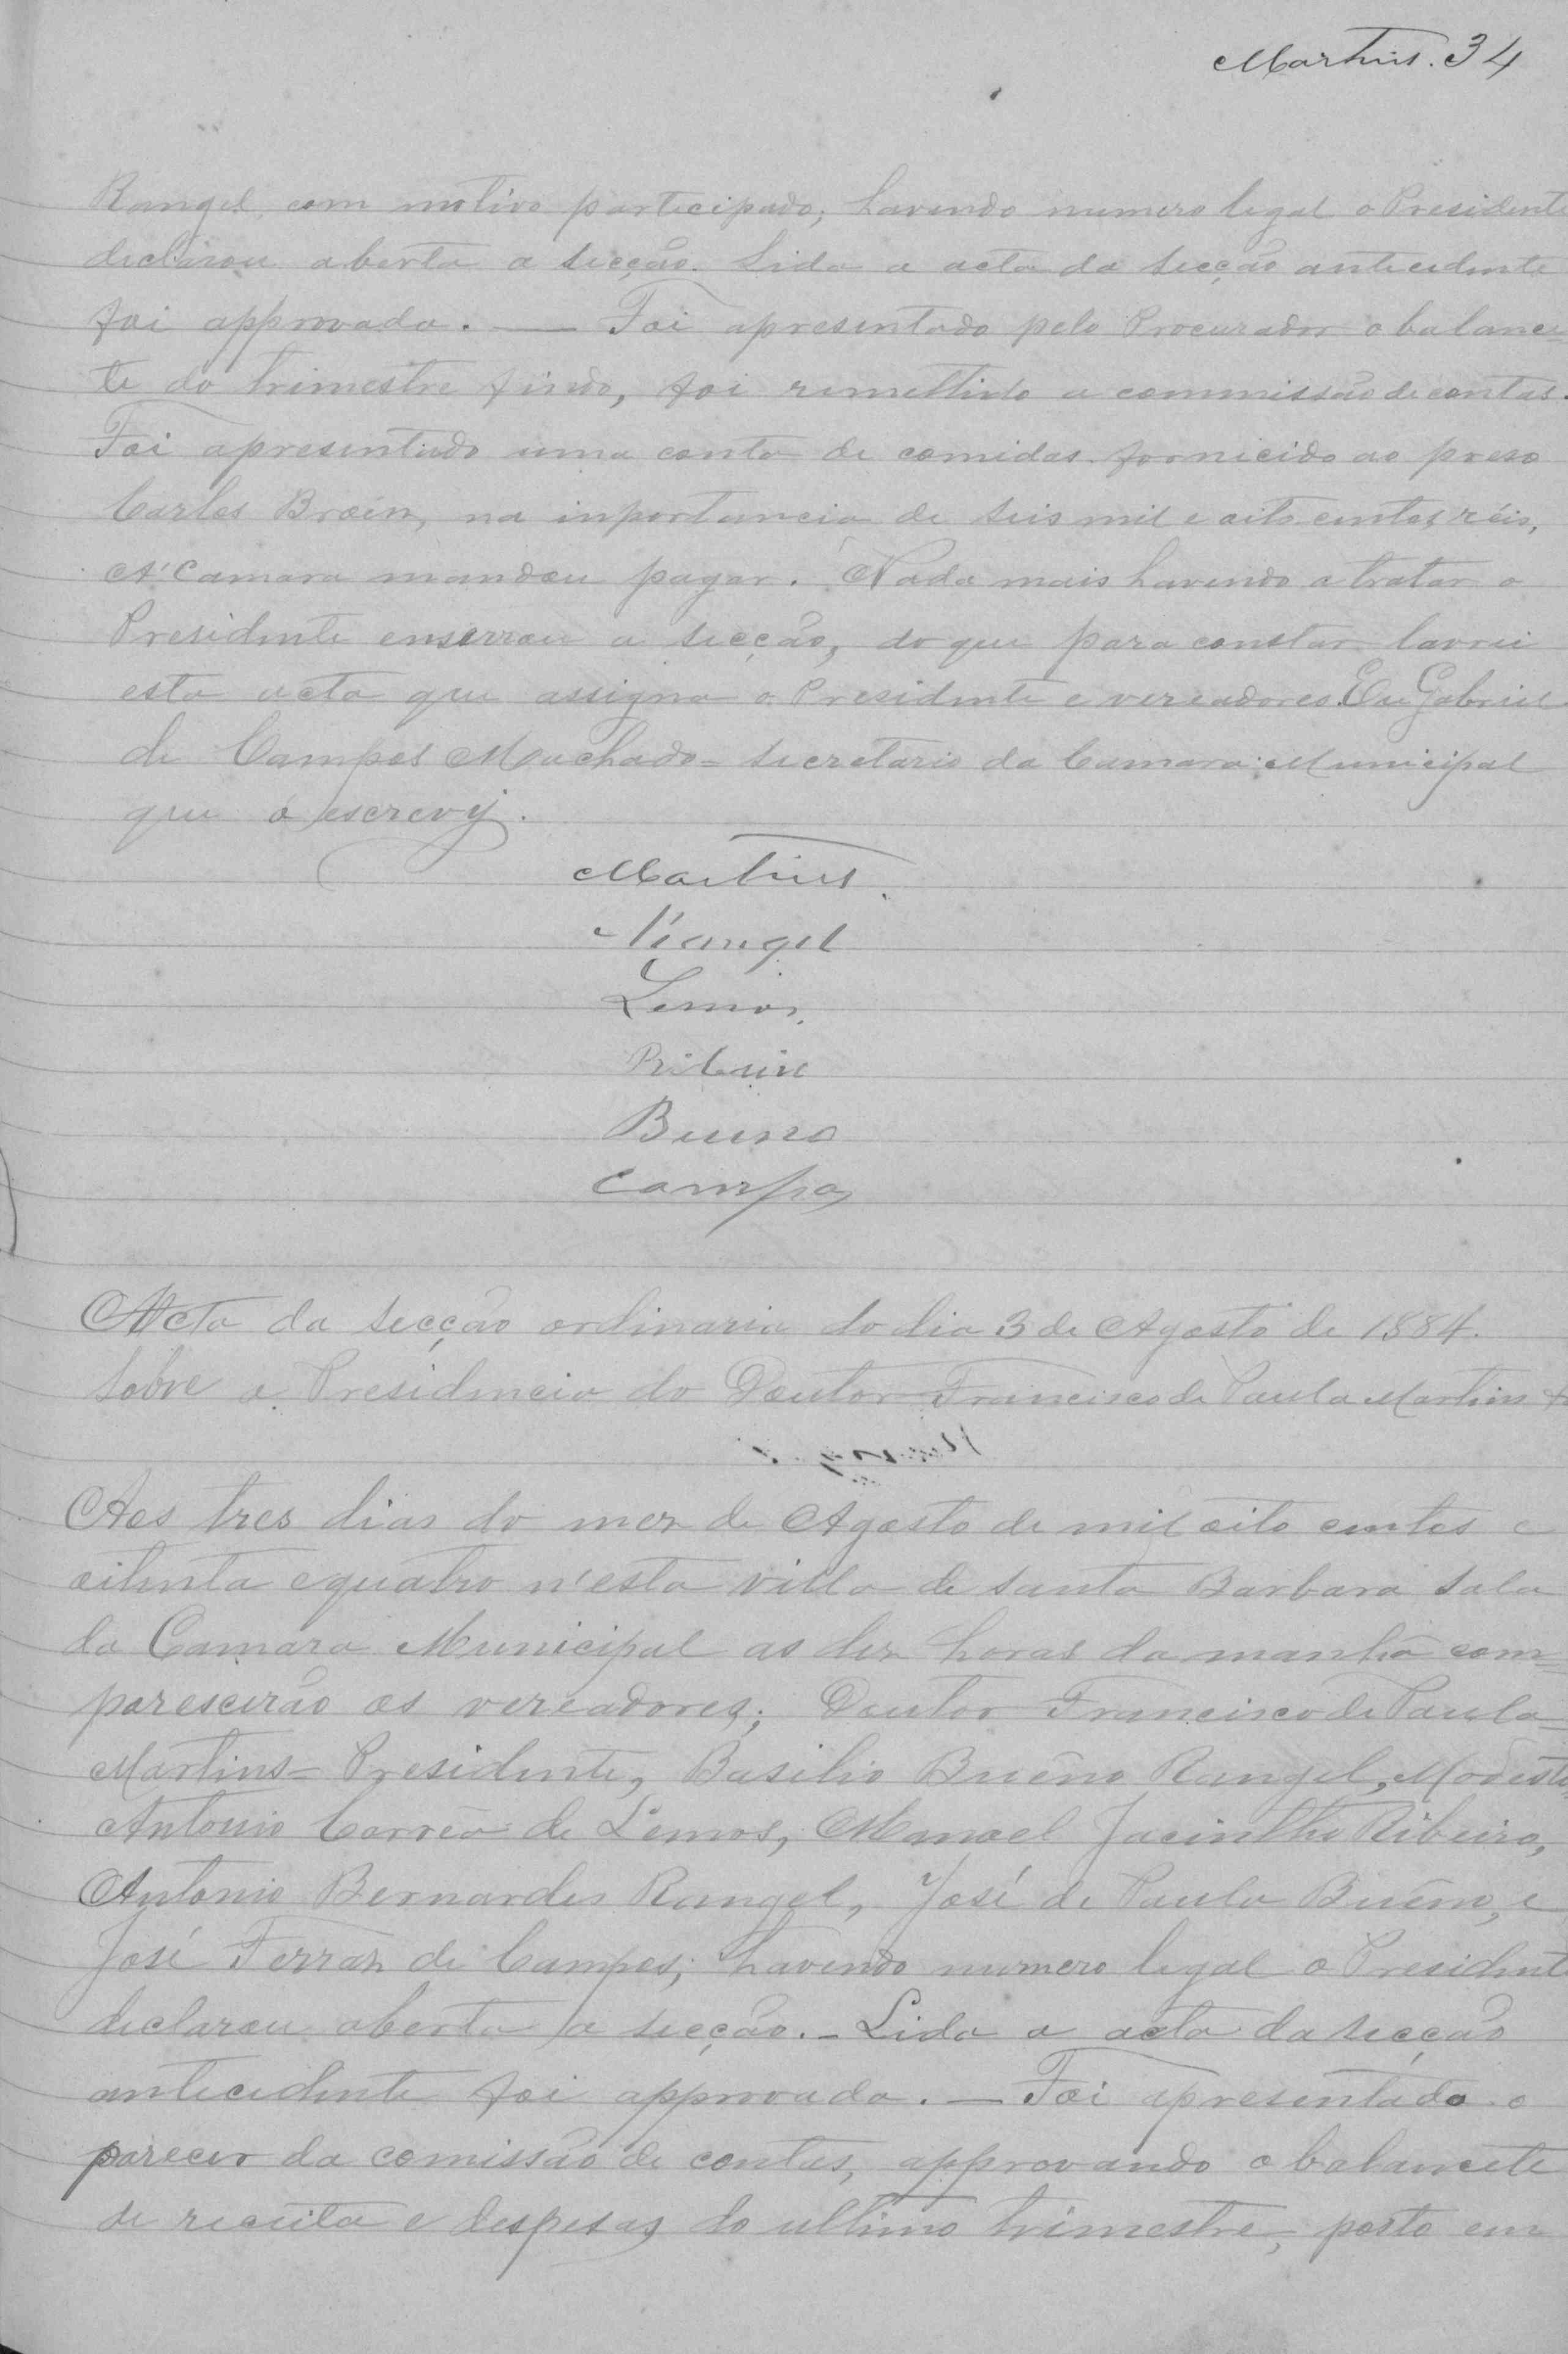 Martins. 34
Rangel, com motivo participado; havendo numero legal o Presidente
declarou aberta a secção. Lida a acta da secção antecedente
foi approvada. — Foi apresentado pelo Procurador o balance=
te do trimestre findo, foi remettido a commissão de contas.
Foi apresentado uma conta de comidas fornicido ao preso
Carlos Broein, na inportancia de seis mil e oito centos réis,
A Camara mandou pagar. Nada mais havendo a tratar o
Presidente enserrou a secção, do que para constar lavrei
esta acta que assigna o Presidente e vereadores. Eu Gabriel
de Campos Machado = secretario da Camara Municipal
que o escrevÿ.
Martins.
Rangel
Lemos.
Ribeiro
Bueno
Campos
Acta da secção ordinaria do dia 3 de Agosto de 1884.
Sobre a Presidencia do Doutor Francisco de Paula Martins
Aos tres dias do mez de Agosto de mil oito centos e
oitenta e quatro n'esta villa de Santa Barbara sala
da Camara Municipal as dez horas da manhã com=
parescerão os vereadores; Doutor Francisco de Paula=
Martins = Presidente, Basilio Bueno Rangel, Modesto
Antonio Corrêa de Lemos, Manoel Jacintho Ribeiro,
Antonio Bernardes Rangel, José de Paula Bueno, e
José Ferraz de Campos; havendo numero legal o Presidente
declarou aberta a secção. - Lida a acta da secção
antecedente foi approvada. — Foi apresentado o
parecer da comissão de contas, approvando o balancete
de receita e despesas do ultimo trimestre, posto em